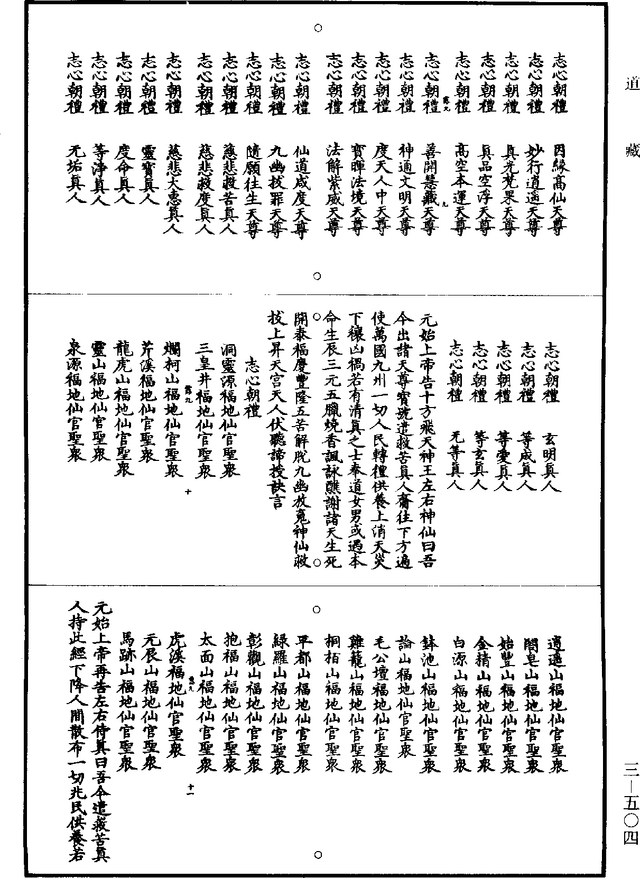 道藏
志心朝禮 因緣高仙天尊
志心朝禮 妙行逍遥天尊
志心朝禮 真光梵果天尊
志心朝禮 真品空浮天尊
志心朝禮 高空本運天尊
志心朝禮 善開慧藏天尊
志心朝禮 神通文明天尊
志心朝禮 度天人中天尊
志心朝禮 寶暉法境天尊
志心朝禮 法解紫威天尊
志心朝禮 仙道咸度天尊
志心朝禮 九幽拔罪天尊
志心朝禮 隨願往生天尊
志心朝禮 慈悲救苦真人
志心朝禮 慈悲救度真人
志心朝禮 慈悲大惠真人
志心朝禮 靈寶真人
志心朝禮 度命真人
志心朝禮 等淨真人
志心朝禮 无垢真人
志心朝禮 玄明真人
志心朝禮 等成真人
志心朝禮 等愛真人
志心朝禮 等玄真人
志心朝禮 无等真人
元始上帝告十方飛天神王左右神仙曰吾
今出諸天尊寶號遣救苦真人齎往下方遍
使萬國九州一切人民轉禮供養上消天災
下穰凶禍若有清真之士奉道女男或遇本
命生辰三元五臘燒香諷詠醮謝諸天生死
開泰福慶豐隆五苦解脫九幽放寃神仙敕
拔上昇天宫天人伏聽諦授訣言
志心朝禮
洞靈源福地仙官聖衆
三皇井福地仙官聖衆
爛柯山福地仙官聖衆
芹溪福地仙官聖衆
龍虎山福地仙官聖衆
靈山福地仙官聖衆
泉源福地仙官聖衆
逍遥山福地仙官聖衆
閤皂山福地仙官聖衆
始豐山福地仙官聖衆
金精山福地仙官聖衆
白源山福地仙官聖衆
鉢池山福地仙官聖衆
論山福地仙官聖衆
毛公壇福地仙官聖衆
雞籠山福地仙官聖衆
桐栢山福地仙官聖衆
平都山福地仙官聖衆
緑羅山福地仙官聖衆
彰觀山福地仙官聖衆
抱福山福地仙官聖衆
太面山福地仙官聖衆
虎溪福地仙官聖衆
元辰山福地仙官聖衆
馬跡山福地仙官聖衆
元始上帝再告左右侍真曰吾今遣救苦真
人持此經下降人間散布一切兆民供養若
三—五〇四